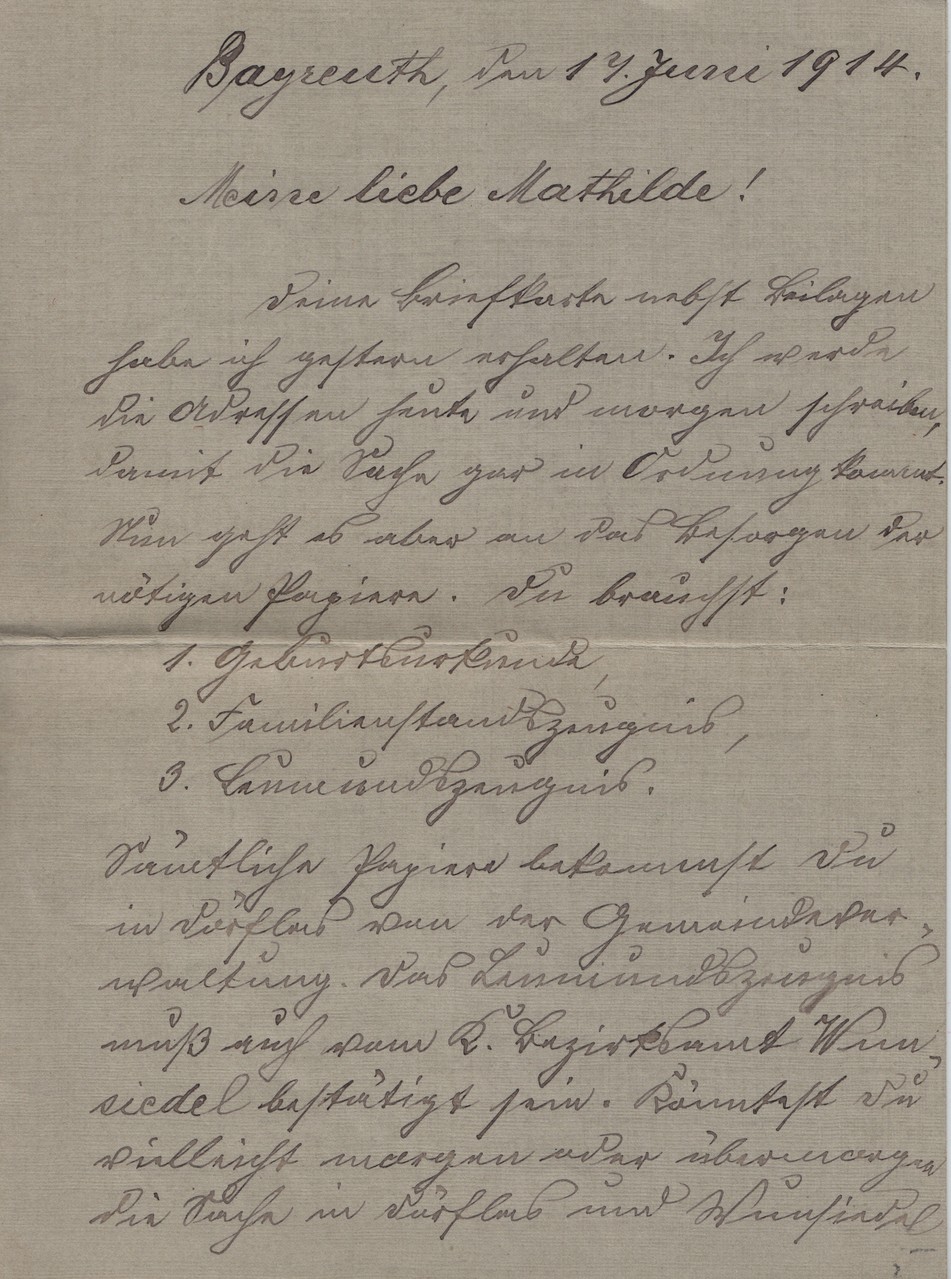 Bayreuth, den 17. Juni 1914.
Meine liebe Mathilde!
Deine Briefkarte nebst Beilagen
habe ich gestern erhalten. Ich werde
die Adressen heute und morgen schreiben,
damit die Sache gar in Ordnung kommt.
Nun geht es aber an das Besorgen der
nötigen Papiere. Du brauchst:
1. Geburtsurkunde,
2. Familienstandszeugnis,
3. Leumundszeugnis.
Sämtliche Papiere bekommst Du
in Dörflas von der Gemeindever-
waltung. Das Leumundszeugnis
muß auch vom K. Bezirksamt Wun-
siedel bestätigt sein. Könntest Du
vielleicht morgen oder übermorgen
die Sache in Dörflas und Wunsiedel